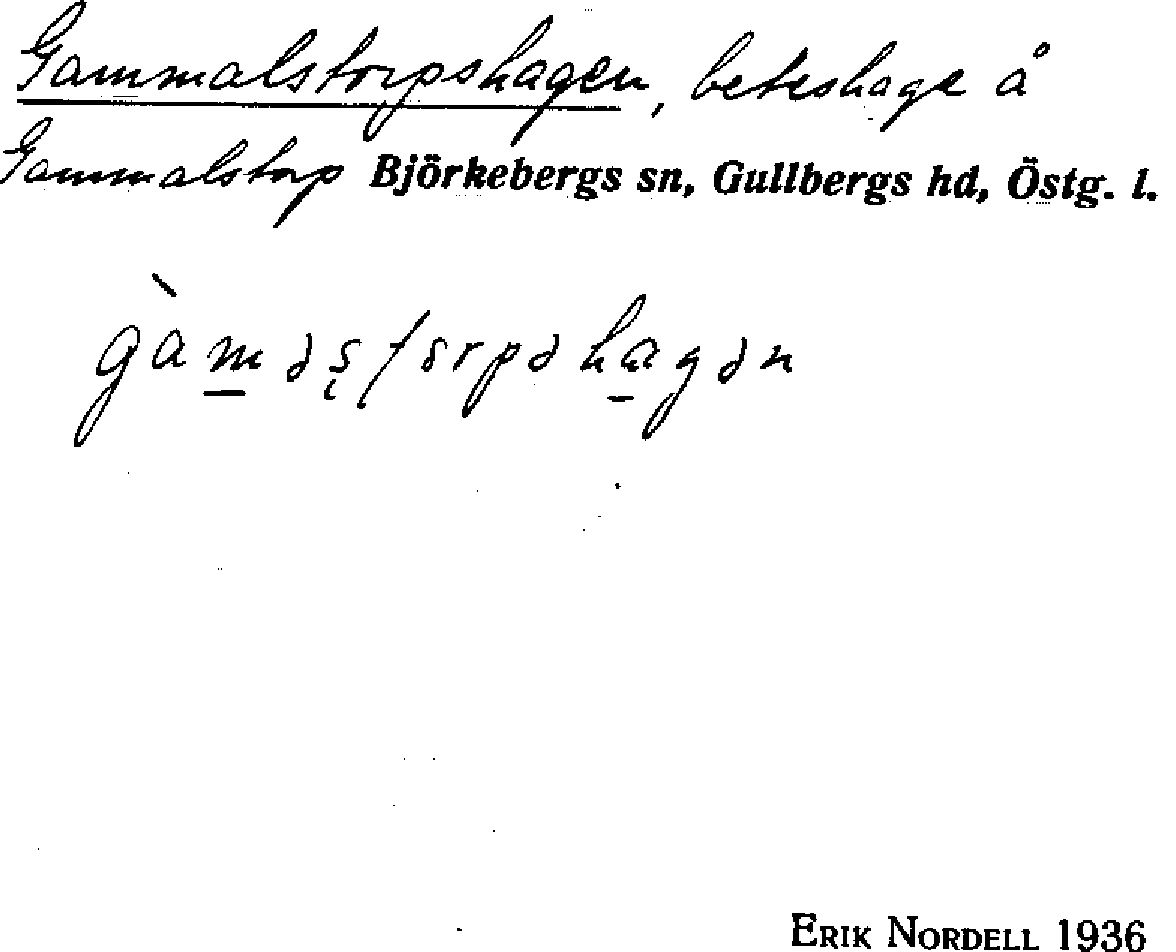 Gammalstorpshagen, beteshage å
Gammalstorp Björkebergs sn, Gullbergs hd, Östg. l.
ERIK NORDELL 1936